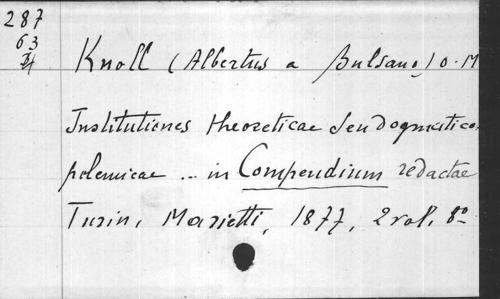 287
63
Knoll (Albertus a Bulsano) O. M
Institutiones theoreticae seu dogmatico-
polemicae ... in Compendium redactae
Turin, Marietti, 1877, 2 vol. 8º